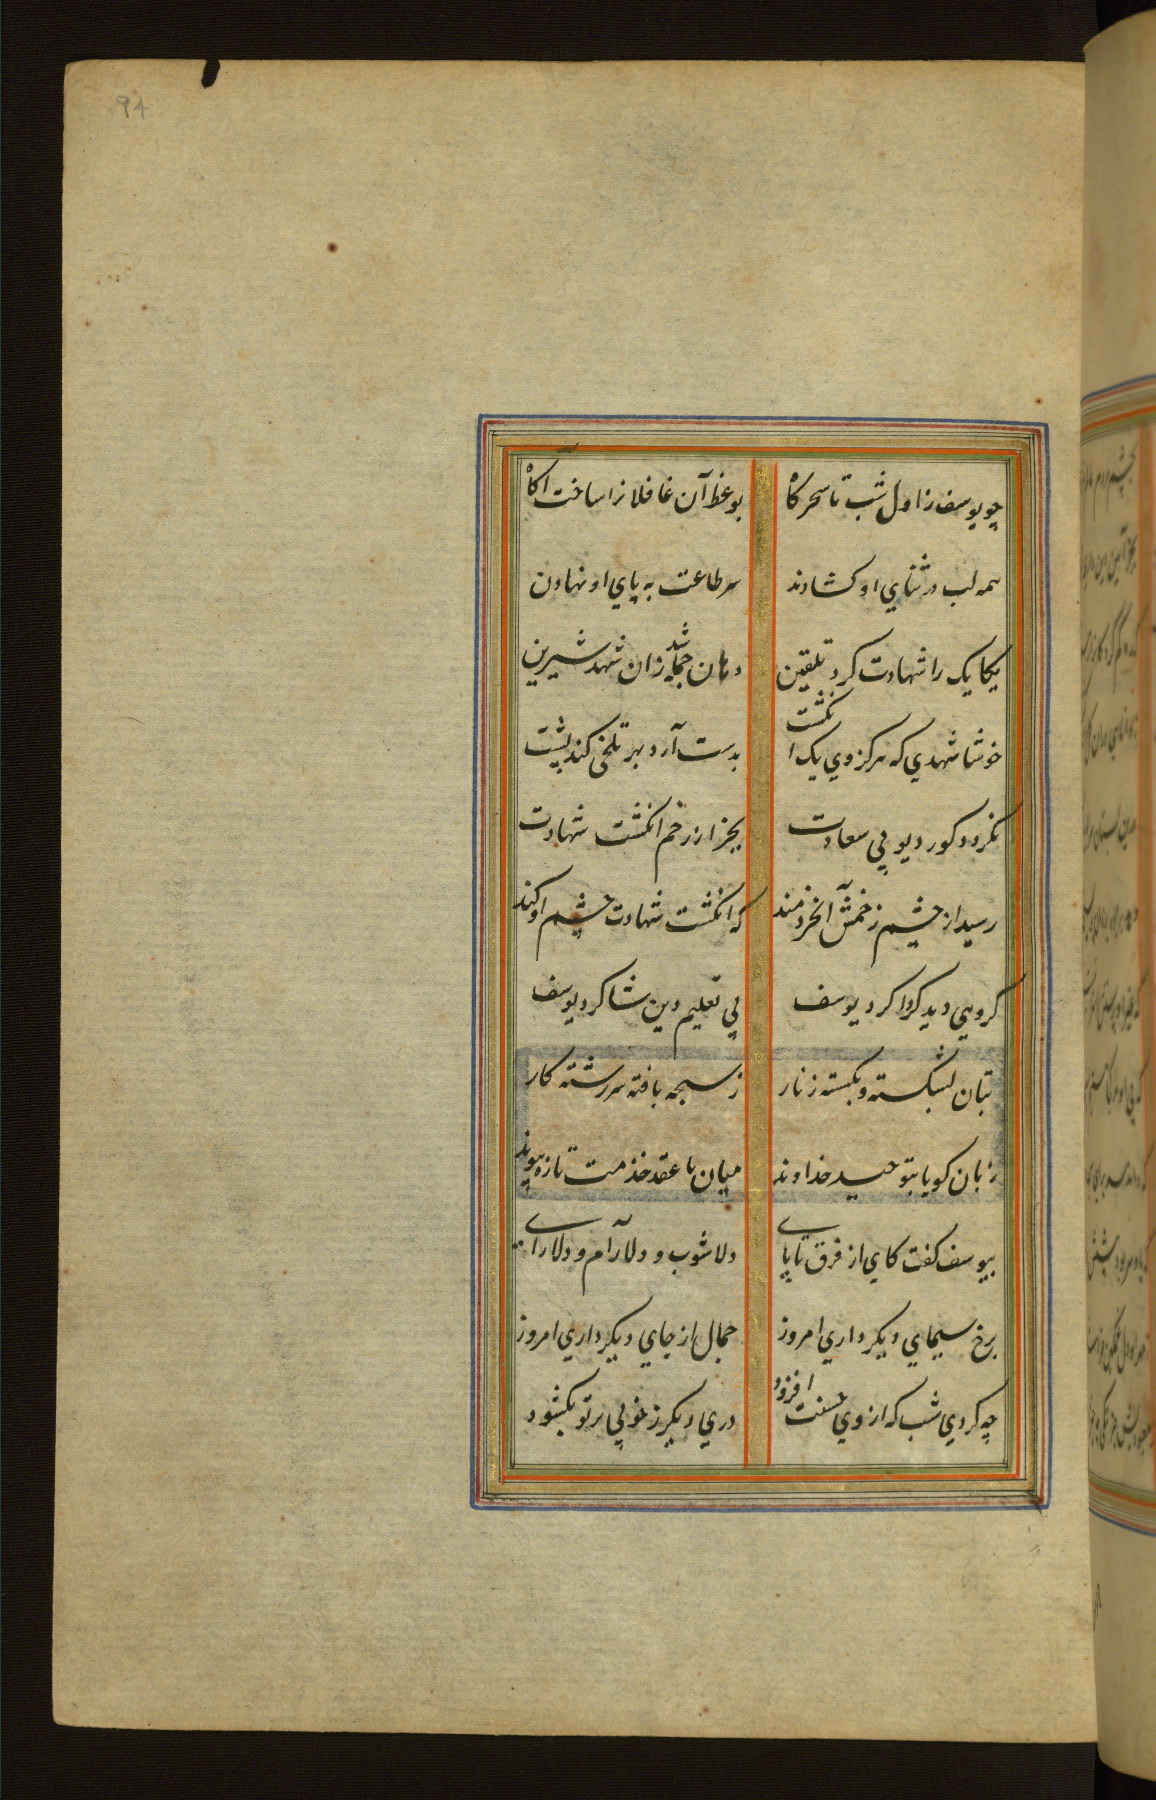 94
چو یوسف ز اول شب تا سحرگاه بوعظ آن غافلانرا ساخت آگاه
همه لب در ثنای او کشادند سر طاعت به پای او نهادن
یکایک را شهادت کرد تلقین دهان جمله شد زان شهد شیرین
خوشا شهدی که هرکز وی یک انکشت بدست آرد بهر تلخی کند پشت
نکردد کور دیو بی سعادت بجز از زخم انکشت شهادت
رسید از چشم زخمش آنخردمند که انکشت شهادت چشم او کند
کروهی دید کرداکرد یوسف پی تعلیم دین شاکرد یوسف
بتان بشکسته و بکسسته زنار ز سبحه یافته سررشته کار
زبان کویا بتوحید خداوند میان با عقد خذمت تازه پیوند
بیوسف کفت کای از فرق تا پای دلاشوب و دلآرام و دلارای
برخ سیمای دیکر داری امروز جمال از جای دیکر داری امروز
چه کردی شب که از وی حسنت افزود دری دیکر ز خوبی بر تو بکشود